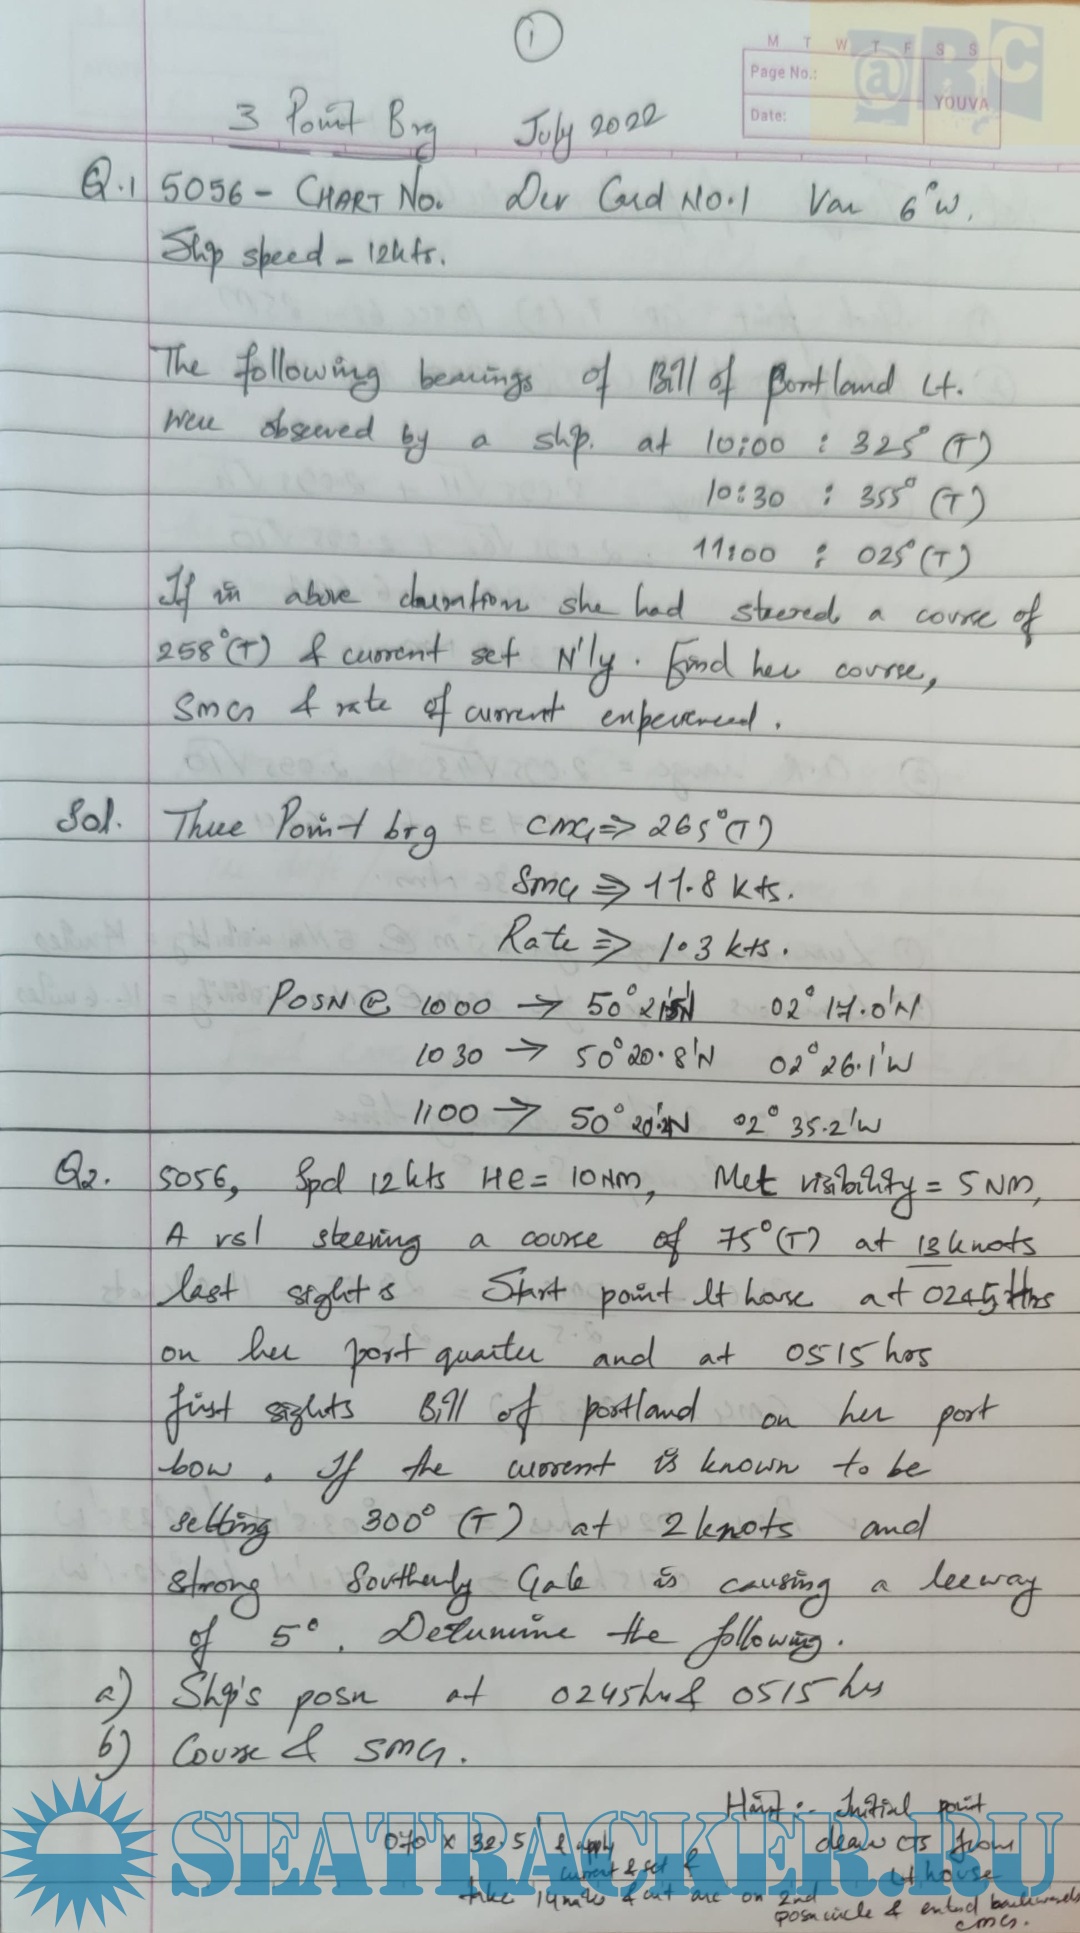 1
M T W T F S S
Page No.:
Date:
YOUVA
@BC
3 Point Brg July 2022
Q.1 5056 - CHART No. Dev Card No.1 Var 6°W.
Ship speed - 12kts.
The following bearings of Bill of portland Lt.
were observed by a shp. at 10:00 : 325° (T)
10:30 : 355° (T)
11:00 : 025° (T)
If in above duration she had steered a course of
258° (T) & current set N'ly. Find her course,
SMG & rate of current experienced.
Sol. Three Point brg CMG ⇒ 265° (T)
SMG ⇒ 11.8 kts.
Rate ⇒ 1.3 kts.
POSN @ 1000 → 50° 21.5'N 02° 17.0'N
1030 → 50° 20.8'N 02° 26.1'W
1100 → 50° 20.2'N 02° 35.2'W
Q2. 5056, Spd 12kts HE = 10NM, Met visibility = 5 NM,
A vsl steering a course of 75° (T) at 13 knots
last sights Start point lt house at 0245 Hrs
on her port quarter and at 0515 hrs
first sights Bill of portland on her port
bow. If the current is known to be
setting 300° (T) at 2 knots and
strong Southerly Gale is causing a leeway
of 5°. Determine the following.
a) Ship's posn at 0245 hrs & 0515 hrs
b) Course & SMG.
Hint :- Initial point
070 × 32.5 & apply draw CTS from
current & set & Lt house
take 14 miles & cut arc on 2nd
posn circle & extend backwards
CMG.
SEATRACKER.RU